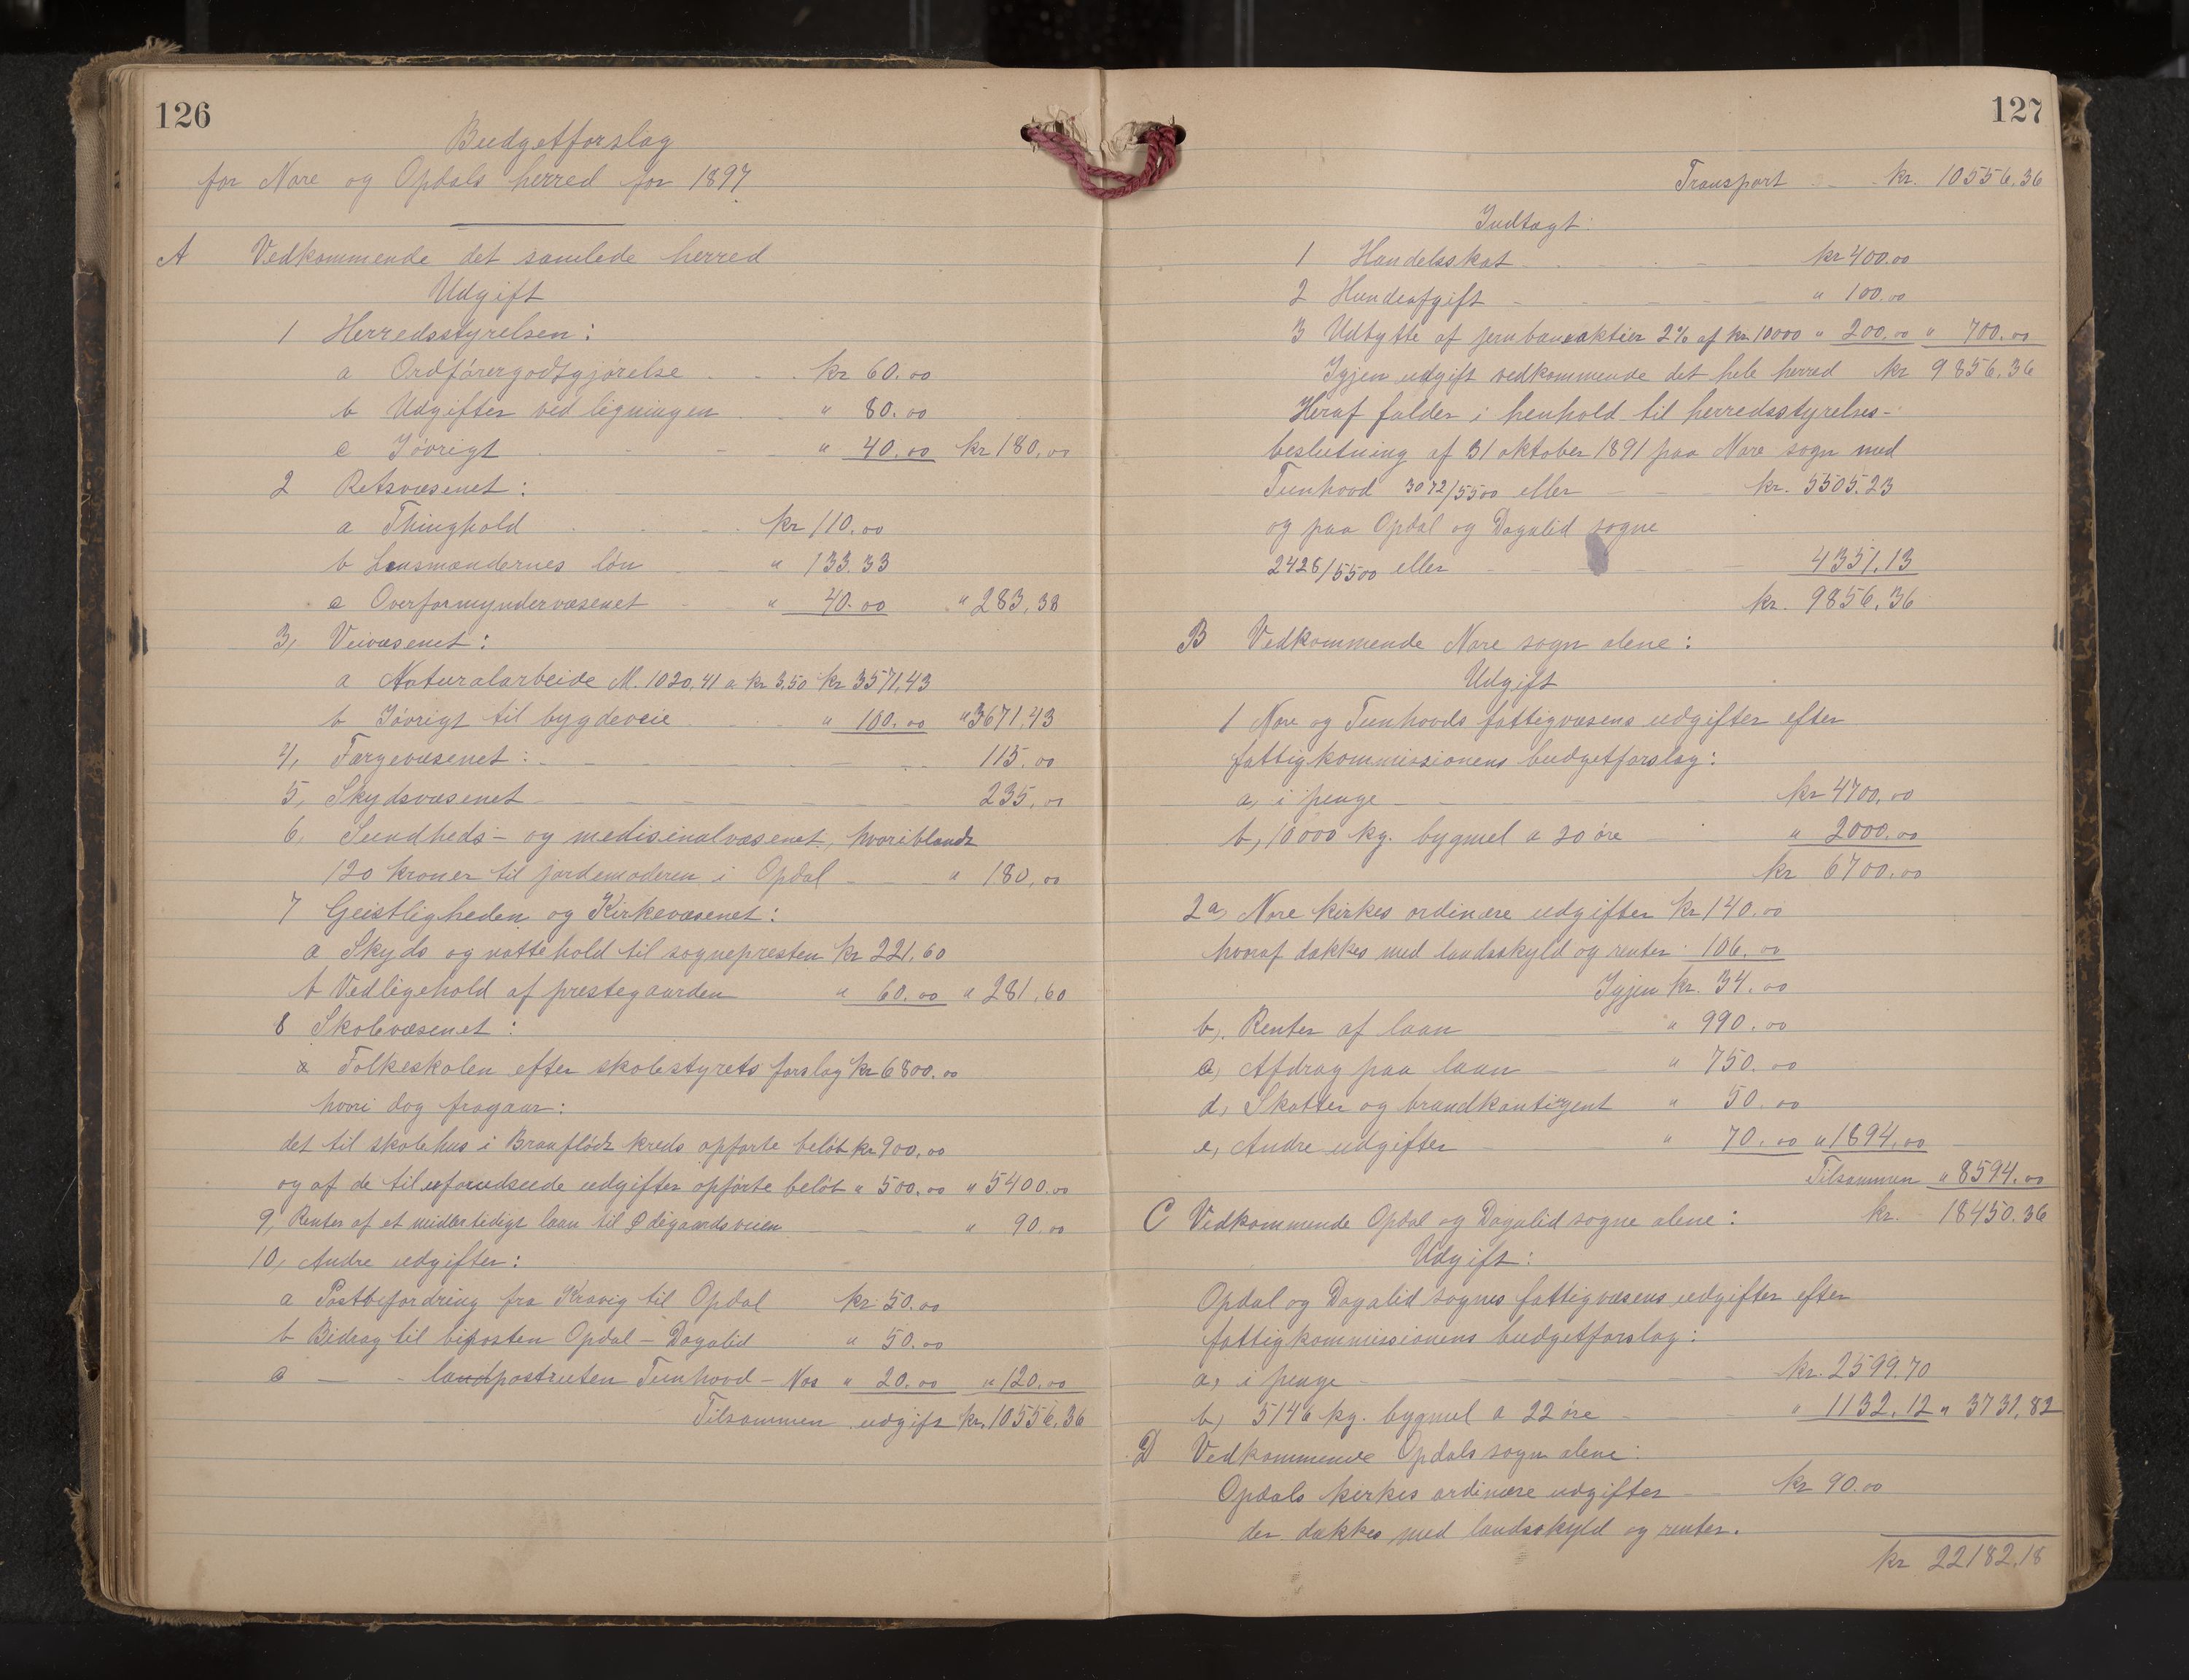 126
Budgetforslag
for Nore og Opdals herred for 1897
A Vedkommende det samlede herred
Udgift
1 Herredsstyrelsen:
a Ordførergodtgjørelse kr 60.00
b Udgifter ved ligningen " 80.00
c Iøvrigt " 40.00 kr 180.00
2 Retsvæsenet:
a Thinghold kr 110.00
b Lensmændernes løn " 133.33
c Overformyndervæsenet " 40.00 " 283,33
3, Veivæsenet:
a Naturalarbeide M. 1020,41 a kr 3,50 kr 3571,43
b Iøvrigt til bygdeveie " 100.00 " 3671,43
4, Færgevæsenet: 115.00
5, Skydsvæsenet 235.00
6, Sundheds- og medisinalvæsenet, hvoriblandt
120 kroner til jordemoderen i Opdal " 180,00
7 Geistligheden og Kirkevæsenet:
a Skyds og nattehold til sognepresten kr 221,60
b Vedligehold af prestegaarden " 60.00 " 281,60
8 Skolevæsenet:
a Folkeskolen efter skolestyrets forslag kr 6800.00
hvori dog fragaar:
det til skolehus i Brauflødt kreds opførte beløb kr 900,00
og af de til uforudseede udgifter opførte beløb " 500.00 " 5400.00
9, Renter af et midlertidigt laan til Ødegaardsveien " 90.00
10, Andre udgifter:
a Postbefordring fra Kravig til Opdal kr 50.00
b Bidrag til biposten Opdal - Dagalid " 50.00
c — - landpostruten Tunhovd - Nos " 20.00 " 120.00
Tilsammen udgift kr. 10556,36
127
Transport kr. 10556,36
Indtægt:
1 Handelsskat kr 400.00
2 Hundeafgift " 100.00
3 Udbytte af jernbaneaktier 2% af kr 10000 " 200.00 " 700.00
Igjen udgift vedkommende det hele herred kr 9856,36
Heraf falder i henhold til herredsstyrelses-
beslutning af 31 oktober 1891 paa Nore sogn med
Tunhovd 3072/5500 eller kr. 5505.23
og paa Opdal og Dagalid sogne
2428/5500 eller 4351,13
kr. 9856,36
B Vedkommende Nore sogn alene:
Udgift
1 Nore og Tunhovds fattigvæsens udgifter efter
fattigkommissionens budgetforslag:
a, i penge kr 4700,00
b, 10000 kg. bygmel a 20 øre " 2000.00
kr 6700.00
2a, Nore kirkes ordinære udgifter kr 140.00
hvoraf dækkes med landsskyld og renter 106.00
Igjen kr. 34.00
b, Renter af laan " 990.00
c, Afdrag paa laan " 750.00
d, Skatter og brandkontingent " 50.00
e, Andre udgifter " 70.00 " 1894,00
Tilsammen " 8594.00
C Vedkommende Opdal og Dagalid sogne alene: kr. 18450.36
Udgift:
Opdal og Dagalid sognes fattigvæsens udgifter efter
fattigkommissionens budgetforslag:
a, i penge kr. 2599.70
b, 5146 kg. bygmel a 22 øre " 1132.12 " 3731,82
D Vedkommende Opdals sogn alene:
Opdals kirkes ordinære udgifter kr 90.00
der dækkes med landsskyld og renter.
kr 22182,18